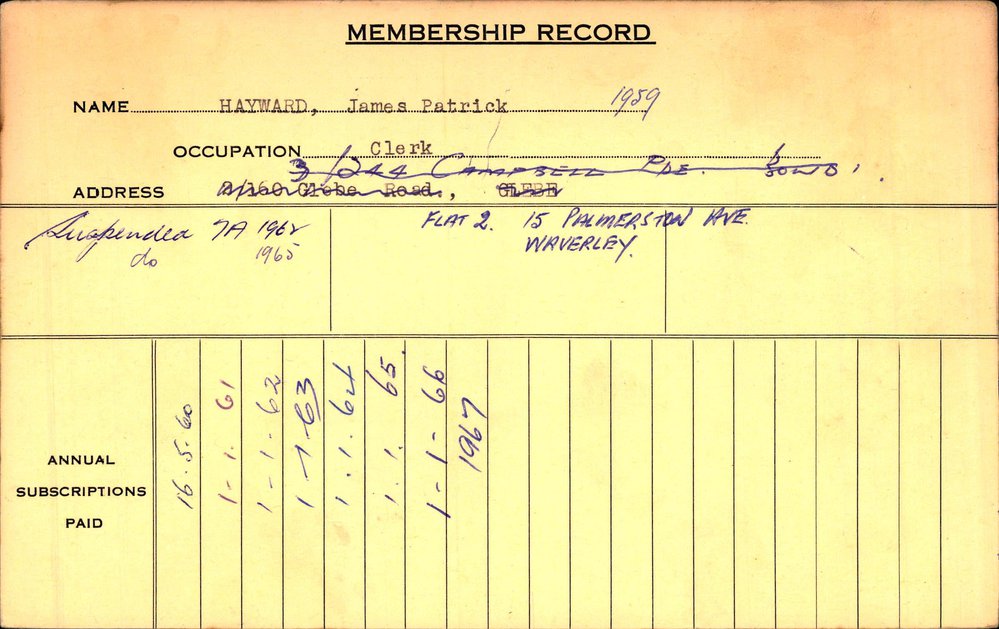 MEMBERSHIP RECORD
NAME HAYWARD, James Patrick 1959
OCCUPATION Clerk
3/244 CAMPBELL PDE.
ADDRESS 2/160 Glebe Road., GLEBE
Suspended 7A 1962 FLAT 2. 15 PALMERSTON AVE.
do 1965 WAVERLEY.
ANNUAL
SUBSCRIPTIONS
PAID
16.5.60
1-1.61
1-1.62
1-1-63
1.1.64
1.1.65.
1-1-66
1967